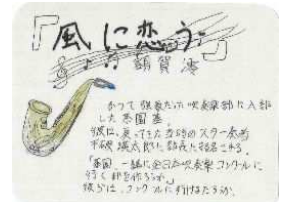 『風に恋う』
額賀 澪
かつて強豪だった吹奏楽部に入部
した茶園基。
彼は、戻ってきた当時のスター奏者
不破瑛太郎に部長に指名される。
「茶園、一緒に全日本吹奏楽コンクールに
行く部を作ろうか。」
彼らは、コンクールに行けるだろうか。